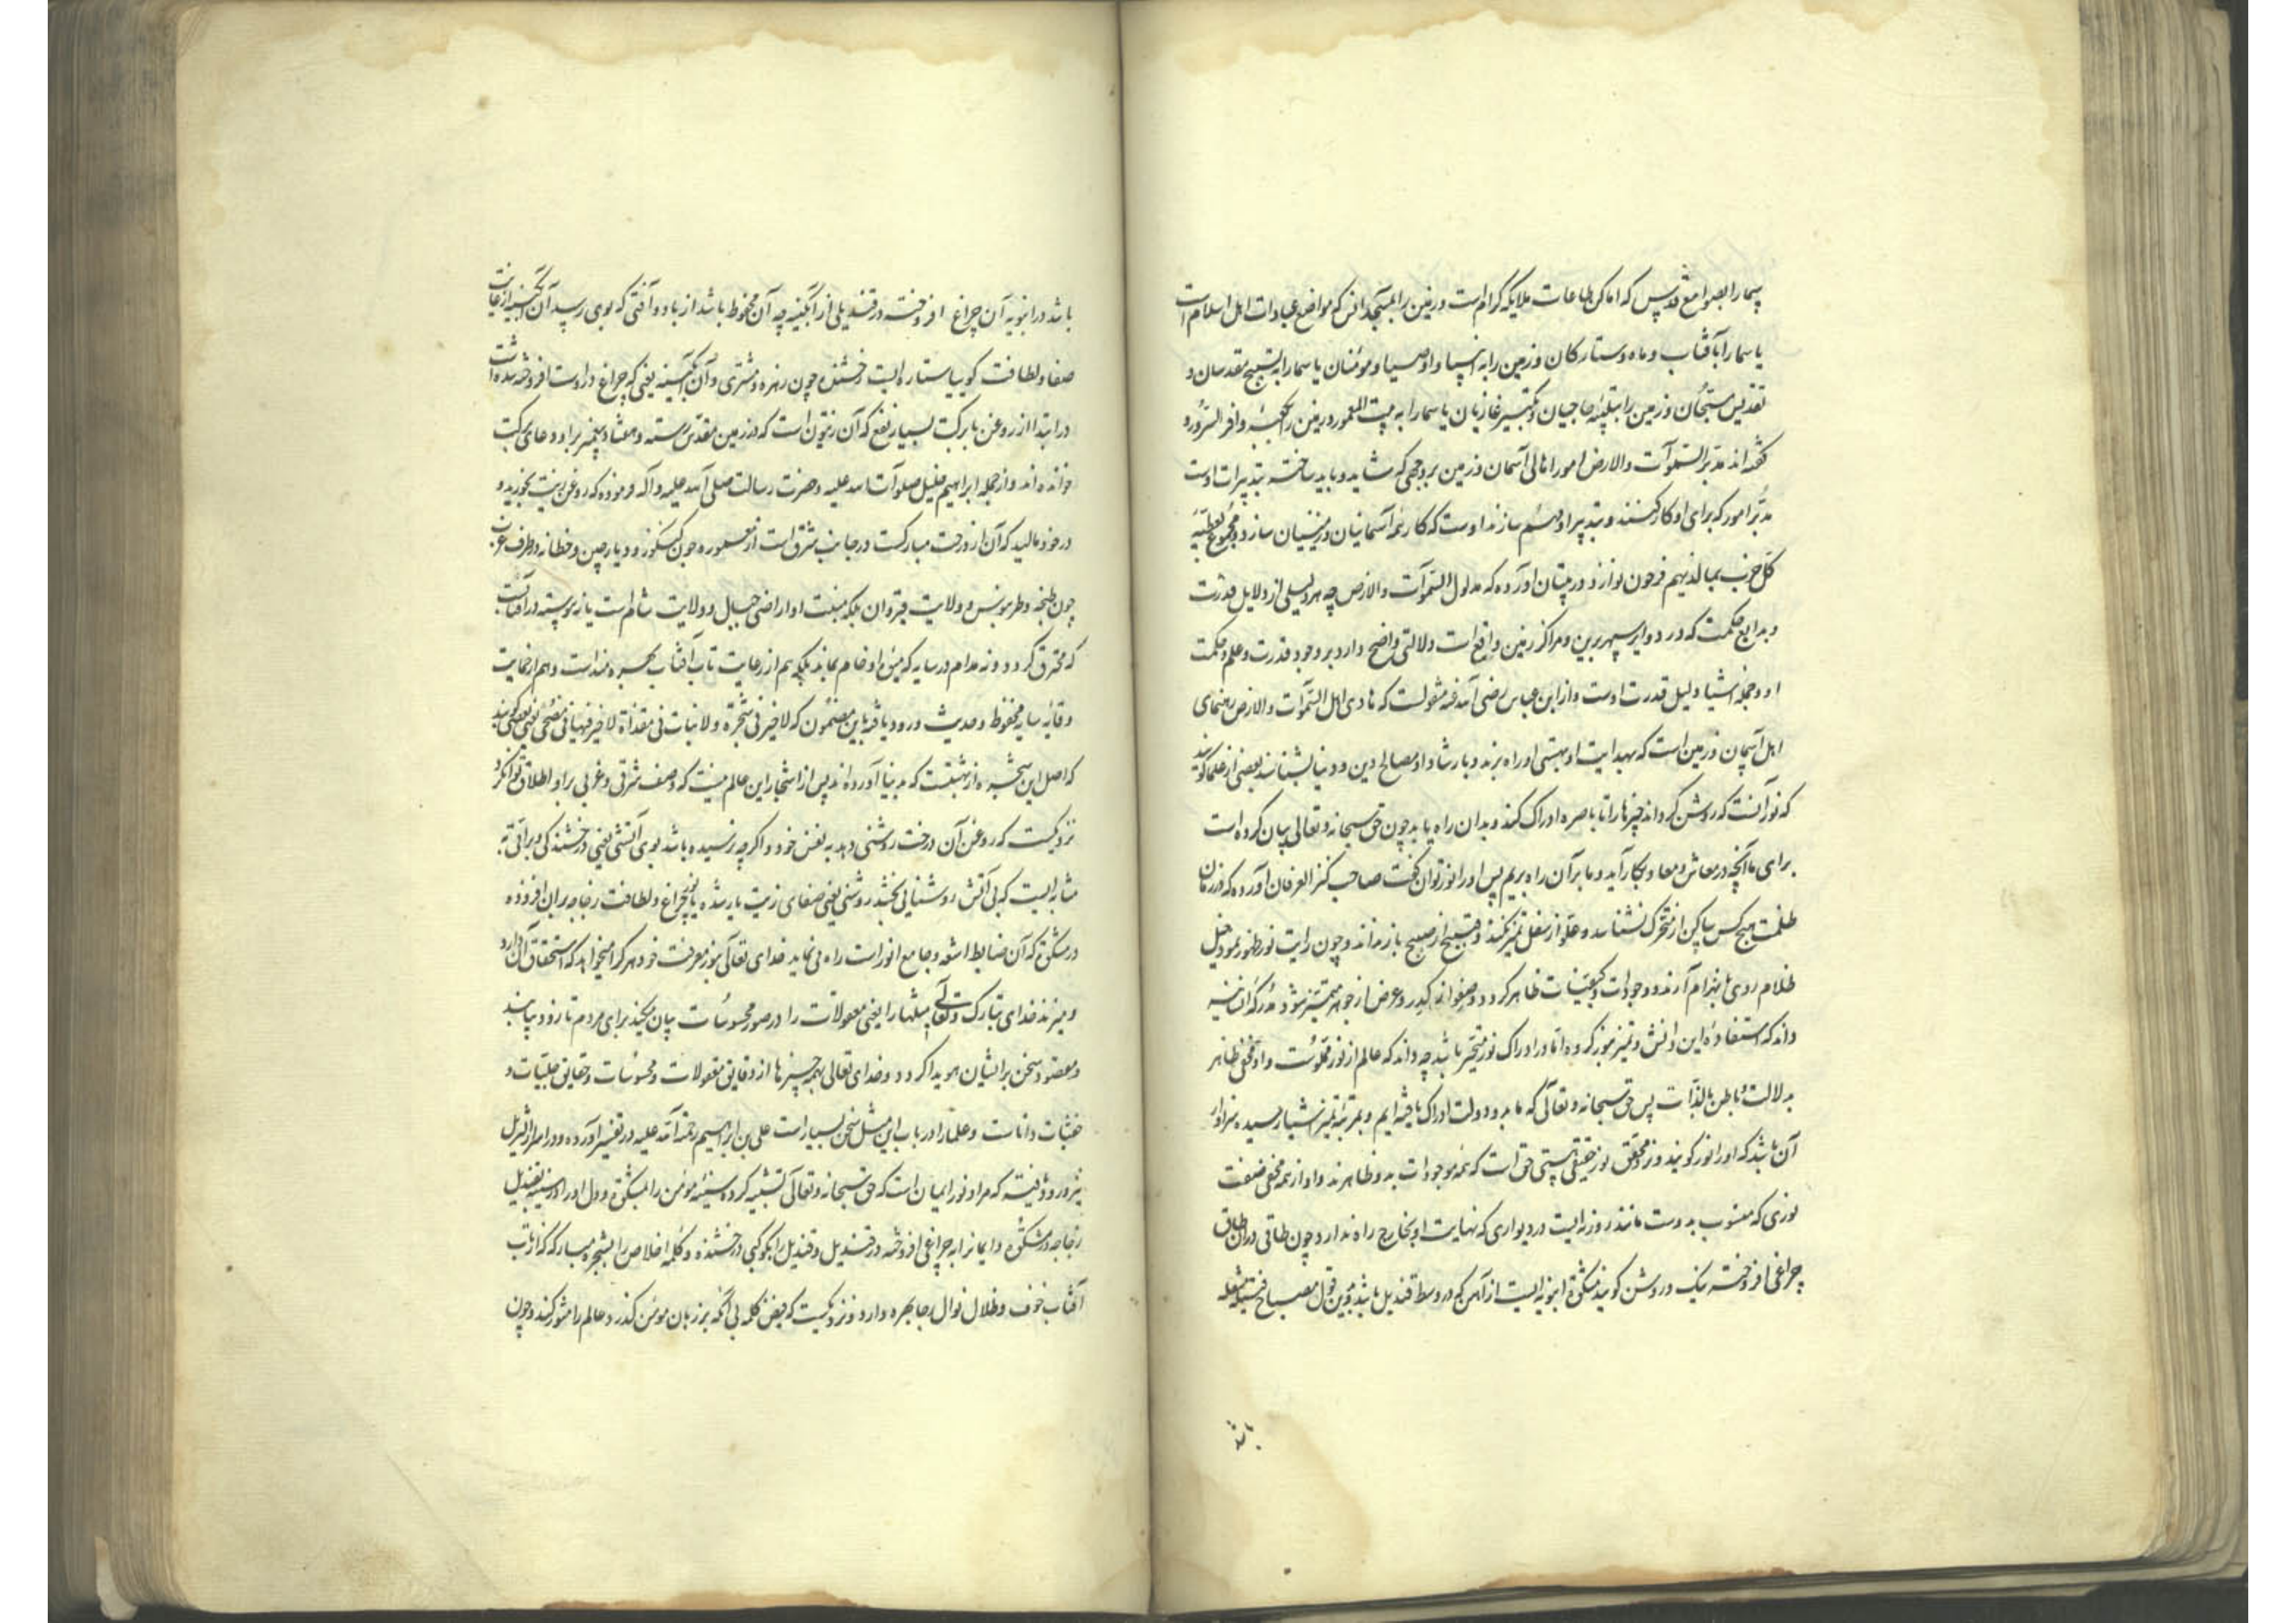 سما را بصوامع قدس که اماکن طاعات ملایکه کرام است و زمین را بمساجد انس که مواضع عبادات اهل اسلام است
یا سما را بآفتاب و ماه و ستارکان و زمین را به انبیا و اوصیا و مومنان یا سما را به تسبیح مقدسان و
تقدیس مسبحان و زمین را بتلبیه حاجیان و تکبیر غازیان یا سما را به بیت المعمور و زمین را بکعبه وافر السرور و
کفته اند مدبر السموات والارض امور اهالی آسمان و زمین بر وجهی که شاید و باید ساخته تدبیرات اوست
مدبر امور که برای او کار کنند و بتدبیر او مهم سازند اوست که کار همه آسمانیان و زمینیان سازد و مجموع بعطیه
کل حزب بما لدیهم فرحون نوازد و در تبیان آورده که مدلول السموات والارض چه هر دلیلی از دلایل قدرت
و بدایع حکمت که در دوایر سپهر برین و مراکز زمین واقع است دلالتی واضح دارد بر وجود قدرت و علم و حکمت
او و جمله اشیا دلیل قدرت اوست و از ابن عباس رضی الله عنه منقولست که هادی اهل السموات والارض رهنمای
اهل آسمان و زمین است که بهدایت او بهستی او راه برند و بارشاد او مصالح دین و دنیا بشناسند بعضی از علما کویند
که نور آنست که روشن کرداند چیزها را تا باصره ادراک کند و بدان راه یابد چون حق سبحانه و تعالی بیان کرده است
برای ما آنچه در معاش و معاد بکار آید و ما بر آن راه بریم پس او را نور توان کفت صاحب کنز العرفان آورده که در زمان
ظلمت هیچ کس ساکن از متحرک نشناسد و علو از سفل تمیز نکند و قبیح از صبیح باز نداند و چون رایت نور ظهور نمود خیل
ظلام روی بانهزام آرند و وجودات و کیفیات ظاهر کردد و صفو از کدر و عرض از جوهر متمیز شود مدرکه انسانیه
داند که استفاده این دانش و تمیز بنور کرده اما در ادراک نور متحیر باشد چه داند که عالم از نور مملوست و او مخفی ظاهر
بدلالت و باطن بالذات پس حق سبحانه و تعالی که ما بدو دولت ادراک یافته ایم و بمرتبه تمیز اشیا رسیده سزاوار
آن باشد که او را نور کویند و نزد محقق نور حقیقی هستی حق است که همه موجودات بدو ظاهرند و او از همه مخفی صفت
نوری که منسوب بدوست مانند روزنه ایست در دیواری که نهایت او بخارج راه ندارد چون طاقی در آن طاق
چراغی افروخته نیک و روشن کویند مشکوة انبوبه ایست از آهن که در وسط قندیل باشد و برین قول مصباح فتیله مشعله
باشد
باشد در انبوبه آن چراغ افروخته در قندیلی از آبکینه چه آن محفوظ باشد از باد و آفتی که بوی رسید آن آبکینه از غایت
صفا و لطافت کوییا ستاره ایست درخشنده چون زهره و مشتری و آن آبکینه یعنی که چراغ دارد است افروخته شده است
در ابتدا از روغن با برکت بسیار نفع که آن زیتون است که در زمین مقدس رسته و هفتاد پیغمبر برا و دعای برکت
خوانده اند و از جمله ابراهیم خلیل صلوات الله علیه و حضرت رسالت صلی الله علیه و آله فرموده که روغن زیت بخورید و
در خود مالید که آن از درخت مبارکست و در جانب شرق است از معموره چون کنکدز و دیار چین و خطا نه در طرف غرب
چون طنجه و طرمونس و ولایت قیروان بلکه منبت او اراضی جبال و ولایت شام است یا نه پیوسته در آفتابست
که محترق کردد و نه مدام در سایه که میوه او خام بماند بلکه هم از رعایت تاب آفتاب بهره مند است و هم از حمایت
وقایه سایه محفوظ و حدیث ورود یافته باین مضمون که لا خیر فی شجرة ولا نبات فی مقناة لا خیر فیها فی مضحی و بعضی کویند
که اصل این شجره از بهشتست که بدنیا آورده اند پس از اشجار این عالم نیست که وصف شرقی و غربی برا و اطلاق توان کرد
نزدیکست که روغن آن درخت روشنی دهد به نفس خود و اکر چه نرسیده باشد بوی آتشی یعنی درخشندکی و براقی به
مثابه ایست که بی آتش روشنایی بخشد روشنی یعنی صفای زیت یار شده با نور چراغ و لطافت زجاجه بران افزوده
در مشکوة که آن ضابط اشعه و جامع انوار است راه می نماید خدای تعالی بنور معرفت خود هر که را میخواهد که استحقاق آن دارد
و میزند خدای تبارک و تعالی مثلها را یعنی معقولات را در صور محسوسات بیان میکند برای مردم تا زود بیابند
و مقصود سخن بر ایشان هویدا کردد و خدای تعالی بهمه چیزها از دقایق معقولات و محسوسات و حقایق جلیات و
خفیات داناست و علما را در باب این مثل سخن بسیار است علی بن ابراهیم رحمة الله علیه در تفسیر آورده و در اسرار التنزیل
نیز ورود یافته که مراد نور ایمان است که حق سبحانه و تعالی تشبیه کرده سینه مؤمن را بمشکوة و دل او را در سینه بقندیل
زجاجه در مشکوة و ایمان را به چراغی افروخته در قندیل و قندیل را بکوکبی درخشنده و کلمه اخلاص را بشجره مبارکه که از تاب
آفتاب خوف و ظلال نوال رجا بهره دارد و نزدیکست که فیض کلمه بی آنکه بر زبان مومن کذرد عالم را منور کند و چون